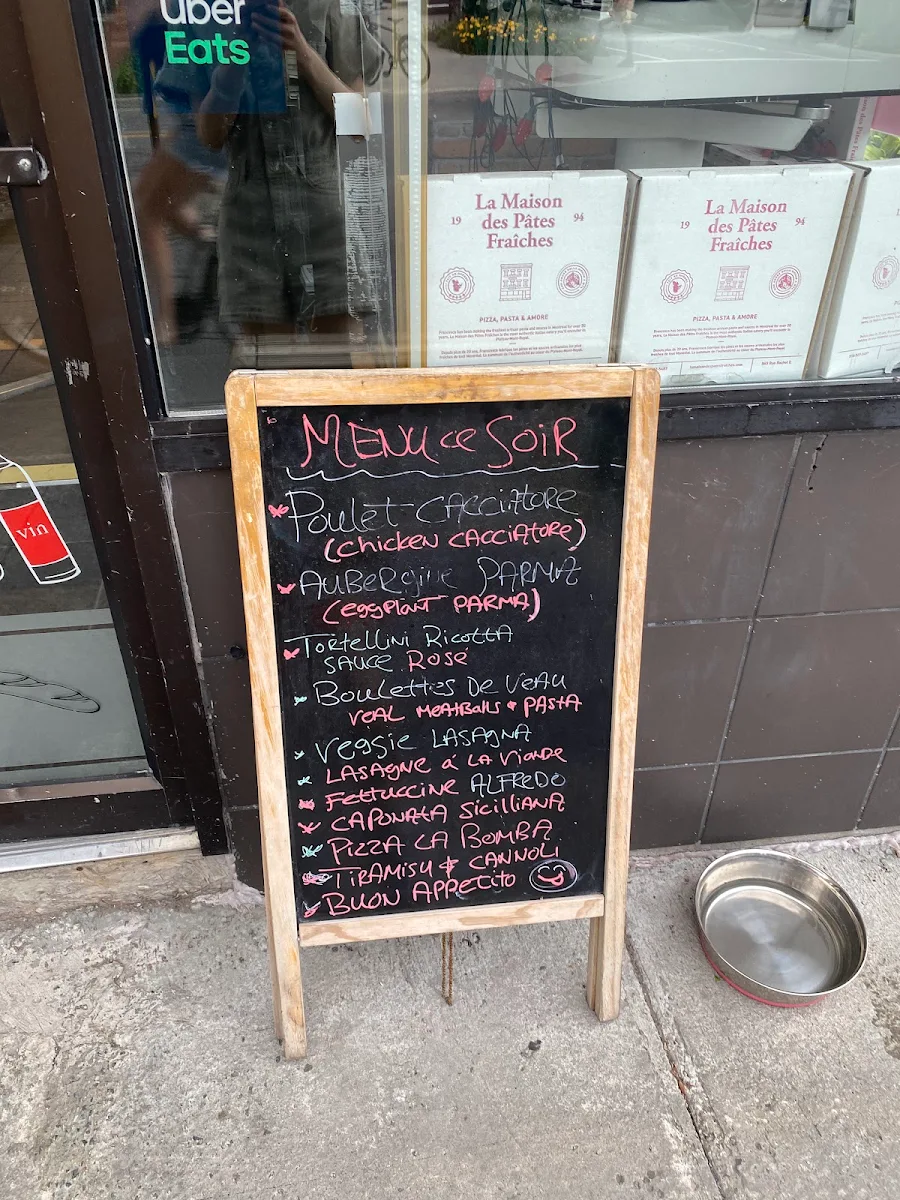 Uber
Eats
La Maison
des Pâtes
Fraîches
19 94
PIZZA, PASTA & AMORE
La Maison
des Pâtes
Fraîches
19 94
PIZZA, PASTA & AMORE
vin
MENU CE SOIR
POULET CACCIATORE
(CHICKEN CACCIATORE)
AUBERGINE PARMA
(eggplant PARMA)
TORTELLINI RICOTTA
SAUCE ROSÉ
BOULETTES DE VEAU
VEAL MEATBALLS & PASTA
VEGGIE LASAGNA
LASAGNE À LA VIANDE
FETTUCCINE ALFREDO
CAPONATA SICILLIANA
PIZZA LA BOMBA
TIRAMISU & CANNOLI
BUON APPETITO